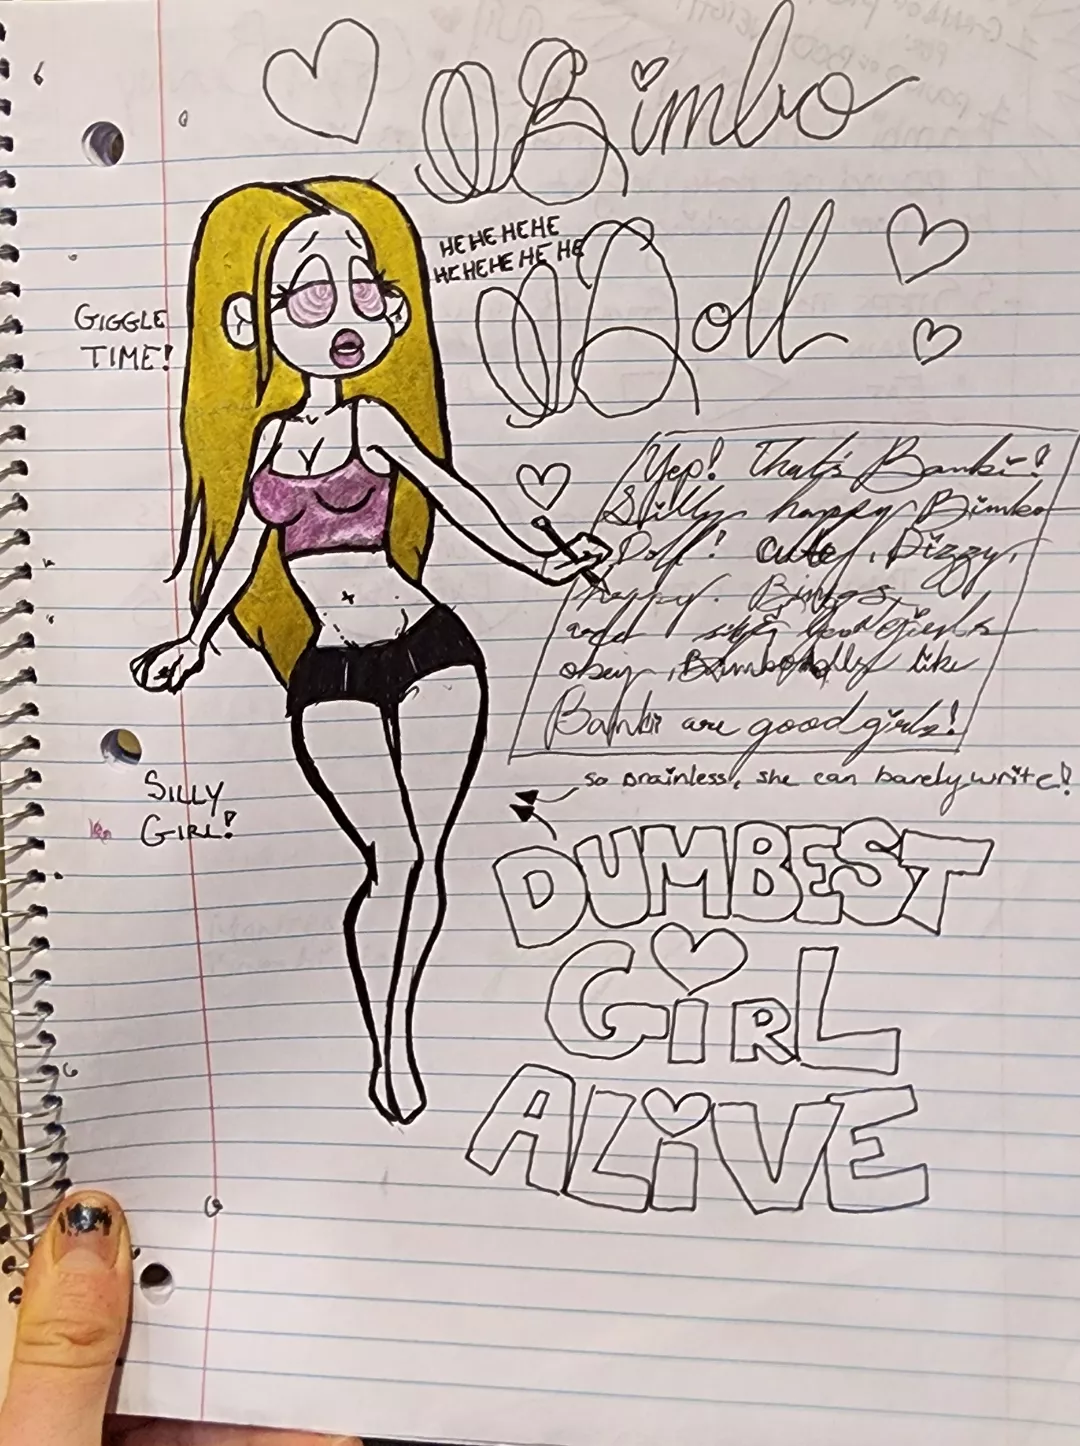 Bimbo
Doll
HEHEHEHE
HEHEHEHEHE
GIGGLE
TIME!
Yep! That's Bambi!
Silly happy Bimbo
Doll! cute, Dizzy,
happy. Bimbos,
and good girls
obey. Bimbo dolls like
Bambi are good girls!
so brainless, she can barely write!
SILLY
GIRL!
DUMBEST
GiRL
ALiVE